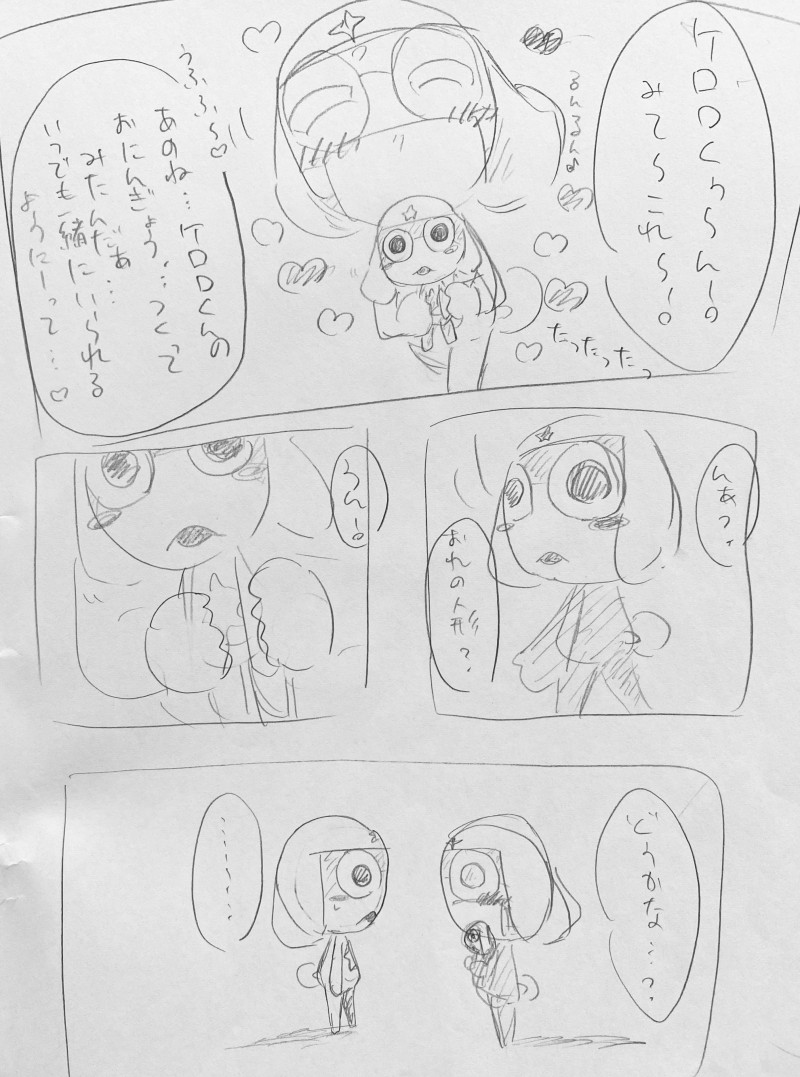 ケロロくぅらん～。
みて～これ～！。
るんるん♪
うふふ～♡
あのね…ケロロくんの
おにんぎょう…つくって
みたんだぁ…
いつでも一緒にいられる
ようにーって…♡
たったったっ
んあっ、
おれの人形？、
うんー。
どうかな…？、